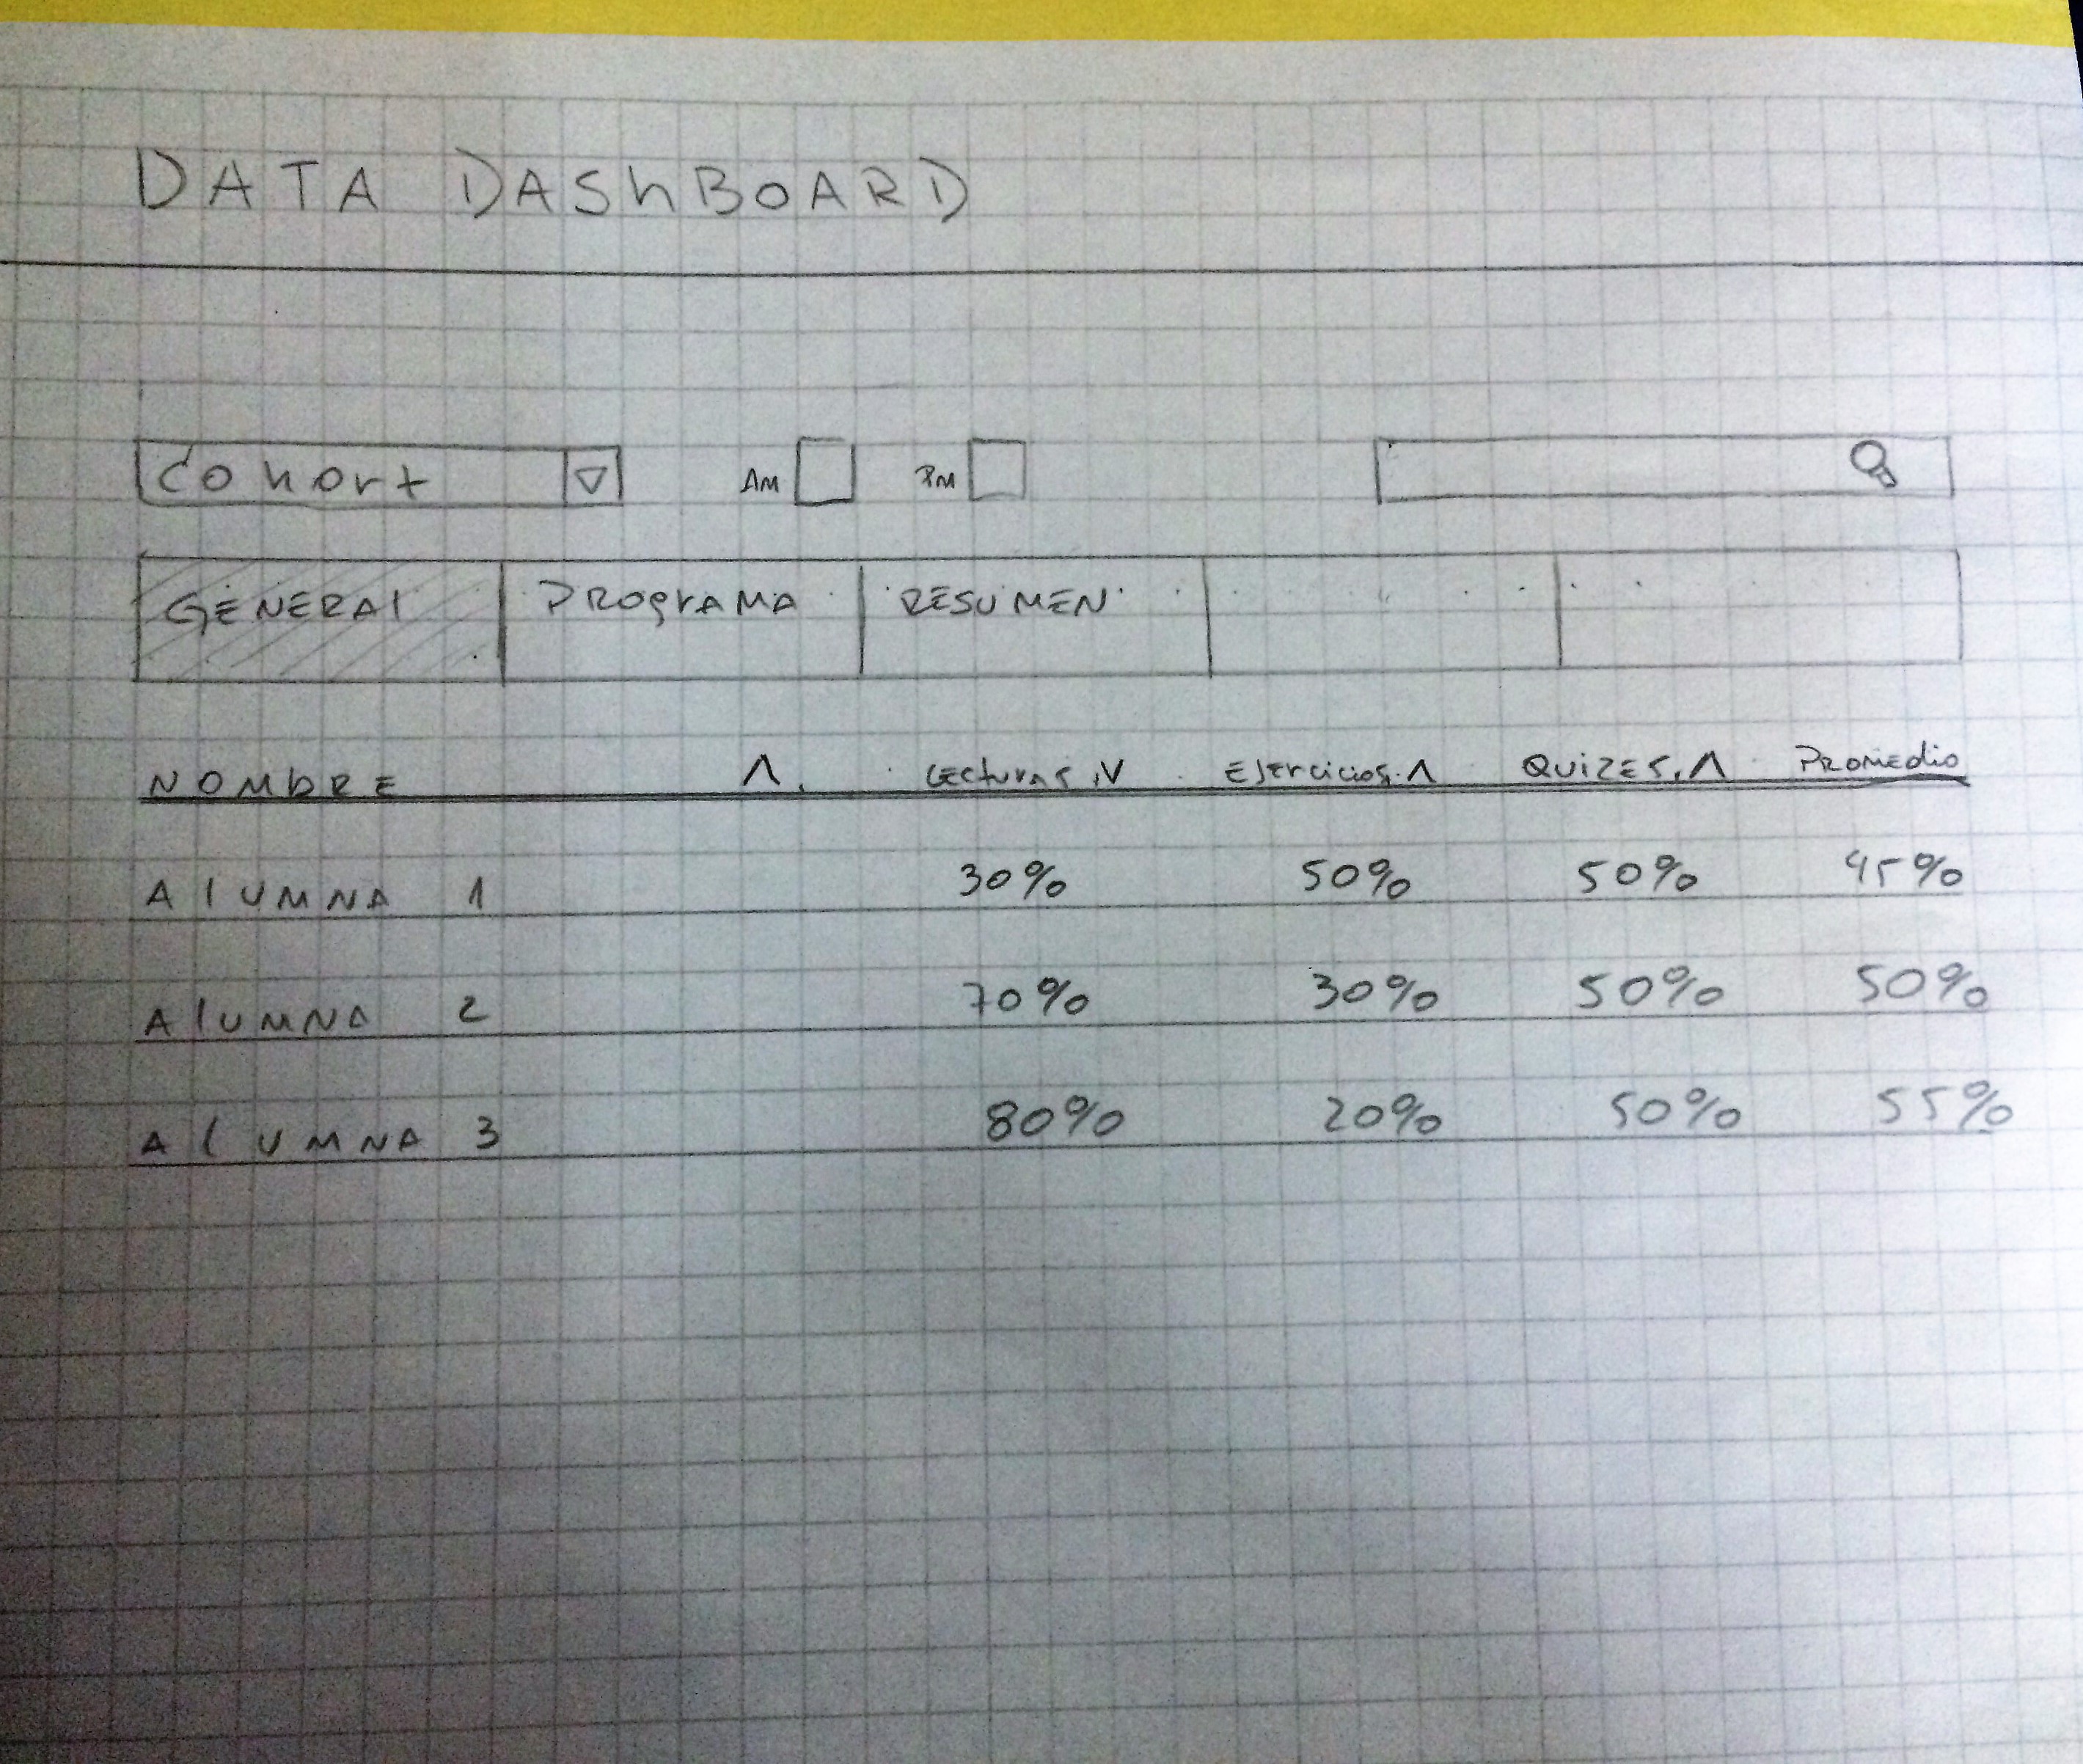 DATA DASHBOARD
Cohort AM PM
GENERAL PROGRAMA RESUMEN
NOMBRE Lecturas Ejercicios QUIZES Promedio
Alumna 1 30% 50% 50% 45%
Alumna 2 70% 30% 50% 50%
Alumna 3 80% 20% 50% 55%